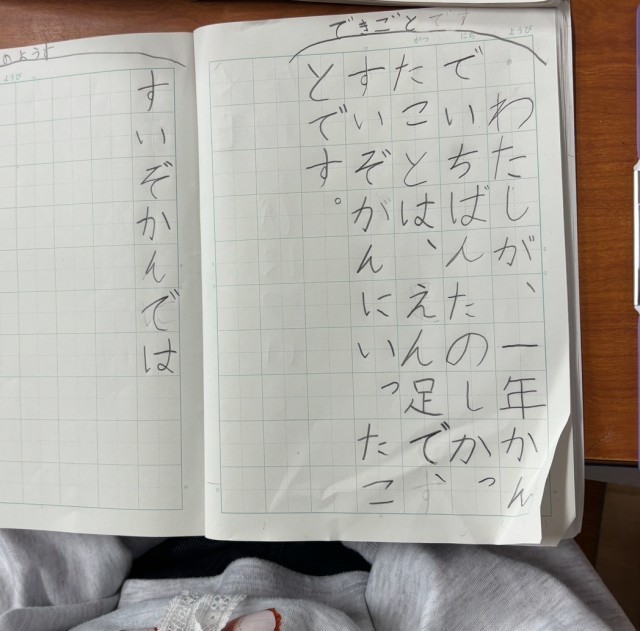 できごとです
がつ にち ようび
わたしが、一年かん
でいちばんたのしかっ
たことは、えん足で、
すいぞがんにいったこ
とです。
のようす
ようび
すいぞかんでは